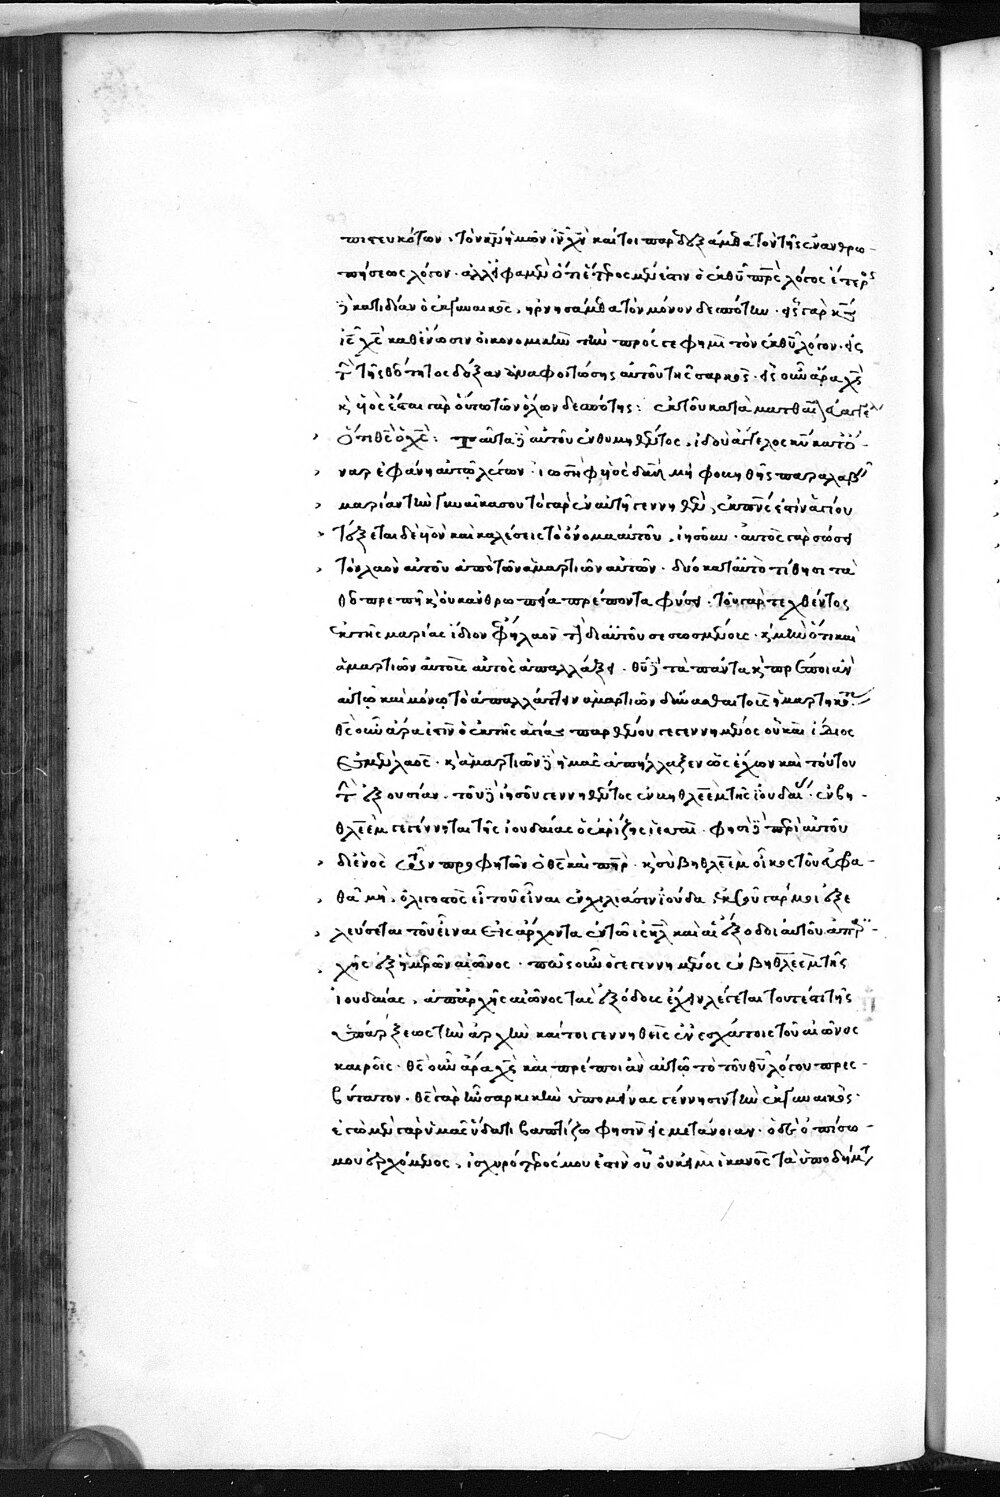 πιστευκότων, τὸν κν̄ ἡμῶν ιν̄ χν̄ καίτοι παραδεξάμεθα τὸν τῆς ἐνανθρω-
πήσεως λόγον. ἀλλ' εἰ φαμὲν ὅτι ἕτερος μέν ἐστιν ὁ ἐκ θῡ πρς̄ λόγος ἕτερος
δὲ κατιδίαν ὁ ἐκ γυναικὸς, ἠρνησάμεθα τὸν μόνον δεσπότην. εἷς γὰρ κς̄
ις̄ χς̄ καθ' ἕνωσιν οἰκονομικὴν τὴν πρός γέ φημι τὸν ἐκ θῡ λόγον. εἰς
τὴν τῆς θεότητος δόξαν ἀναφοιτώσης αὐτοῦ τῆς σαρκὸς. εἷς οὖν ἄρα χς̄
κ υἱὸς ἔσται γὰρ οὕτω τῶν ὅλων δεσπότης: ἐκ τοῦ κατὰ ματθαῖον εὐαγγελίου
ὅτι θς̄ ὁ χς̄: Ταῦτα δὲ αὐτοῦ ἐνθυμηθέντος, ἰδοὺ ἄγγελος κῡ κατ' ὄ-
ναρ ἐφάνη αὐτῷ λέγων. ἰωσὴφ υἱὸς δαδ̄ μὴ φοβηθῇς παραλαβεῖν
μαρίαν τὴν γυναῖκα σου τὸ γὰρ ἐν αὐτῇ γεννηθὲν, ἐκ πνς̄ ἐστὶν ἁγίου
τέξεται δὲ υἱὸν καὶ καλέσεις τὸ ὄνομα αὐτοῦ, ἰησοῦν. αὐτὸς γὰρ σώσει
τὸν λαὸν αὐτοῦ ἀπὸ τῶν ἁμαρτιῶν αὐτῶν. δύο κατ' αὐτὸ τίθησι τὰ
θεοπρεπῆ κ οὐκ ἀνθρωπεία πρέποντα φύσει. τοῦ γὰρ τεχθέντος
ἐκ τῆς μαρίας ἴδιον φησὶ λαὸν τοὺς δι' αὐτοῦ σεσωσμένοις. κ μὴν ὅτι καὶ
ἁμαρτιῶν αὐτοὺς αὐτὸς ἀπαλλάξει. θῡ δὲ τὰ πάντα κ πρέποι ἂν
αὐτῷ καὶ μόνῳ τὸ ἀπαλλάττειν ἁμαρτιῶν δύνασθαι τοὺς ἡμαρτηκότας
θς̄ οὖν ἄρα ἐστὶν ὁ ἐκ τῆς ἁγίας παρθένου γεγεννημένος οὗ καὶ ἴδιος
ἐσμὲν λαὸς. κ ἁμαρτιῶν δὲ ἡμᾶς ἀπήλλαξεν ὡς ἔχων καὶ τούτου
τὴν ἐξουσίαν. τοῦ δὲ ἰησοῦ γεννηθέντος ἐν βηθλεὲμ τῆς ἰουδαίας. ἐν βη-
θλεὲμ γεγέννηται τῆς ἰουδαίας ὁ ἐκ ῥίζης ἰεσσαὶ. φησὶ δὲ περὶ αὐτοῦ
δι' ἑνὸς τῶν προφητῶν ὁ θς̄ καὶ πηρ̄. κ σὺ βηθλεὲμ οἶκος τοῦ ἐφρα-
θᾶ μὴ, ὀλιγοστὸς εἶ τοῦ εἶναι ἐν χιλιάσιν ἰούδα ἐκ σοῦ γάρ μοι ἐξε
λεύσεται τοῦ εἶναι εἰς ἄρχοντα ἐν τῷ ιηλ̄ καὶ αἱ ἔξοδοι αὐτοῦ ἀπ' ἀρ-
χῆς ἐξ ἡμερῶν αἰῶνος. πῶς οὖν ὁ γεγεννημένος ἐν βηθλεὲμ τῆς
ἰουδαίας, ἀπ' ἀρχῆς αἰῶνος τὰς ἐξόδους ἔχειν λέγεται τουτέστι τῆς
ὑπάρξεως τὴν ἀρχὴν καίτοι γεννηθεὶς ἐν ἐσχάτοις τοῦ αἰῶνος
καιροῖς. θς̄ οὖν ἄρα χς̄ καὶ πρέποι ἂν αὐτῷ τὸ τοῦ θῡ λόγου πρεσ-
βύτατον. θς̄ γὰρ ἦν σαρκικὴν ὑπομείνας γέννησιν τὴν ἐκ γυναικὸς.
ἐγὼ μὲν γὰρ ὑμᾶς ὕδατι βαπτίζω φησὶν εἰς μετάνοιαν. ὁ δὲ ὀπίσω
μου ἐρχόμενος, ἰσχυρότερός μου ἐστὶν οὗ οὐκ εἰμὶ ἱκανὸς τὰ ὑποδήματα